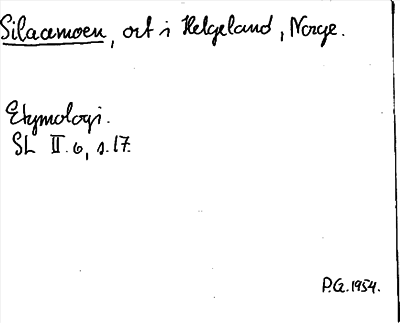 Silaamoen, ort i Helgeland, Norge.
Etymologi.
SL II.6, s.17.
P.G. 1954.